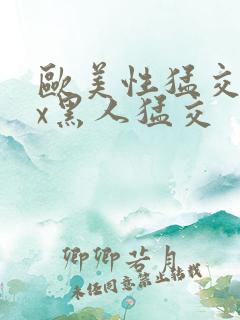 歐美性猛交
x黑人猛交
卿卿若月
未经同意禁止转载